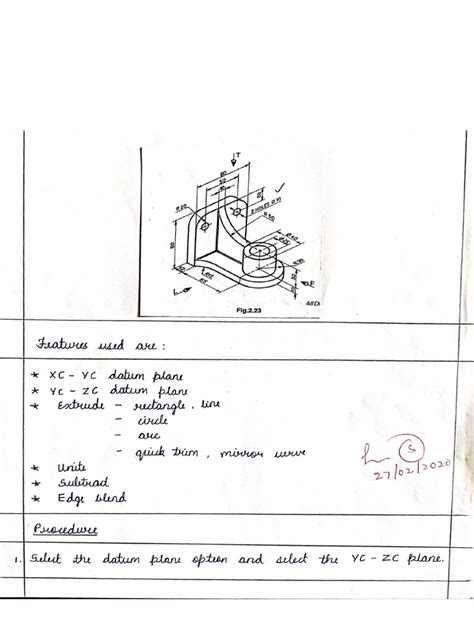 T
80
50
10
20
2 HOLES Ø 10
R 20
R 50
Ø 40
80
R30
F
L
Fig.2.23
Features used are :
* XC - YC datum plane
* YC - ZC datum plane
* Extrude - rectangle, line
- circle
- arc
- quick trim, mirror curve
* Unite
* Subtract
* Edge blend
5
27/02/2020
Procedure
1. Select the datum plane option and select the YC - ZC plane.